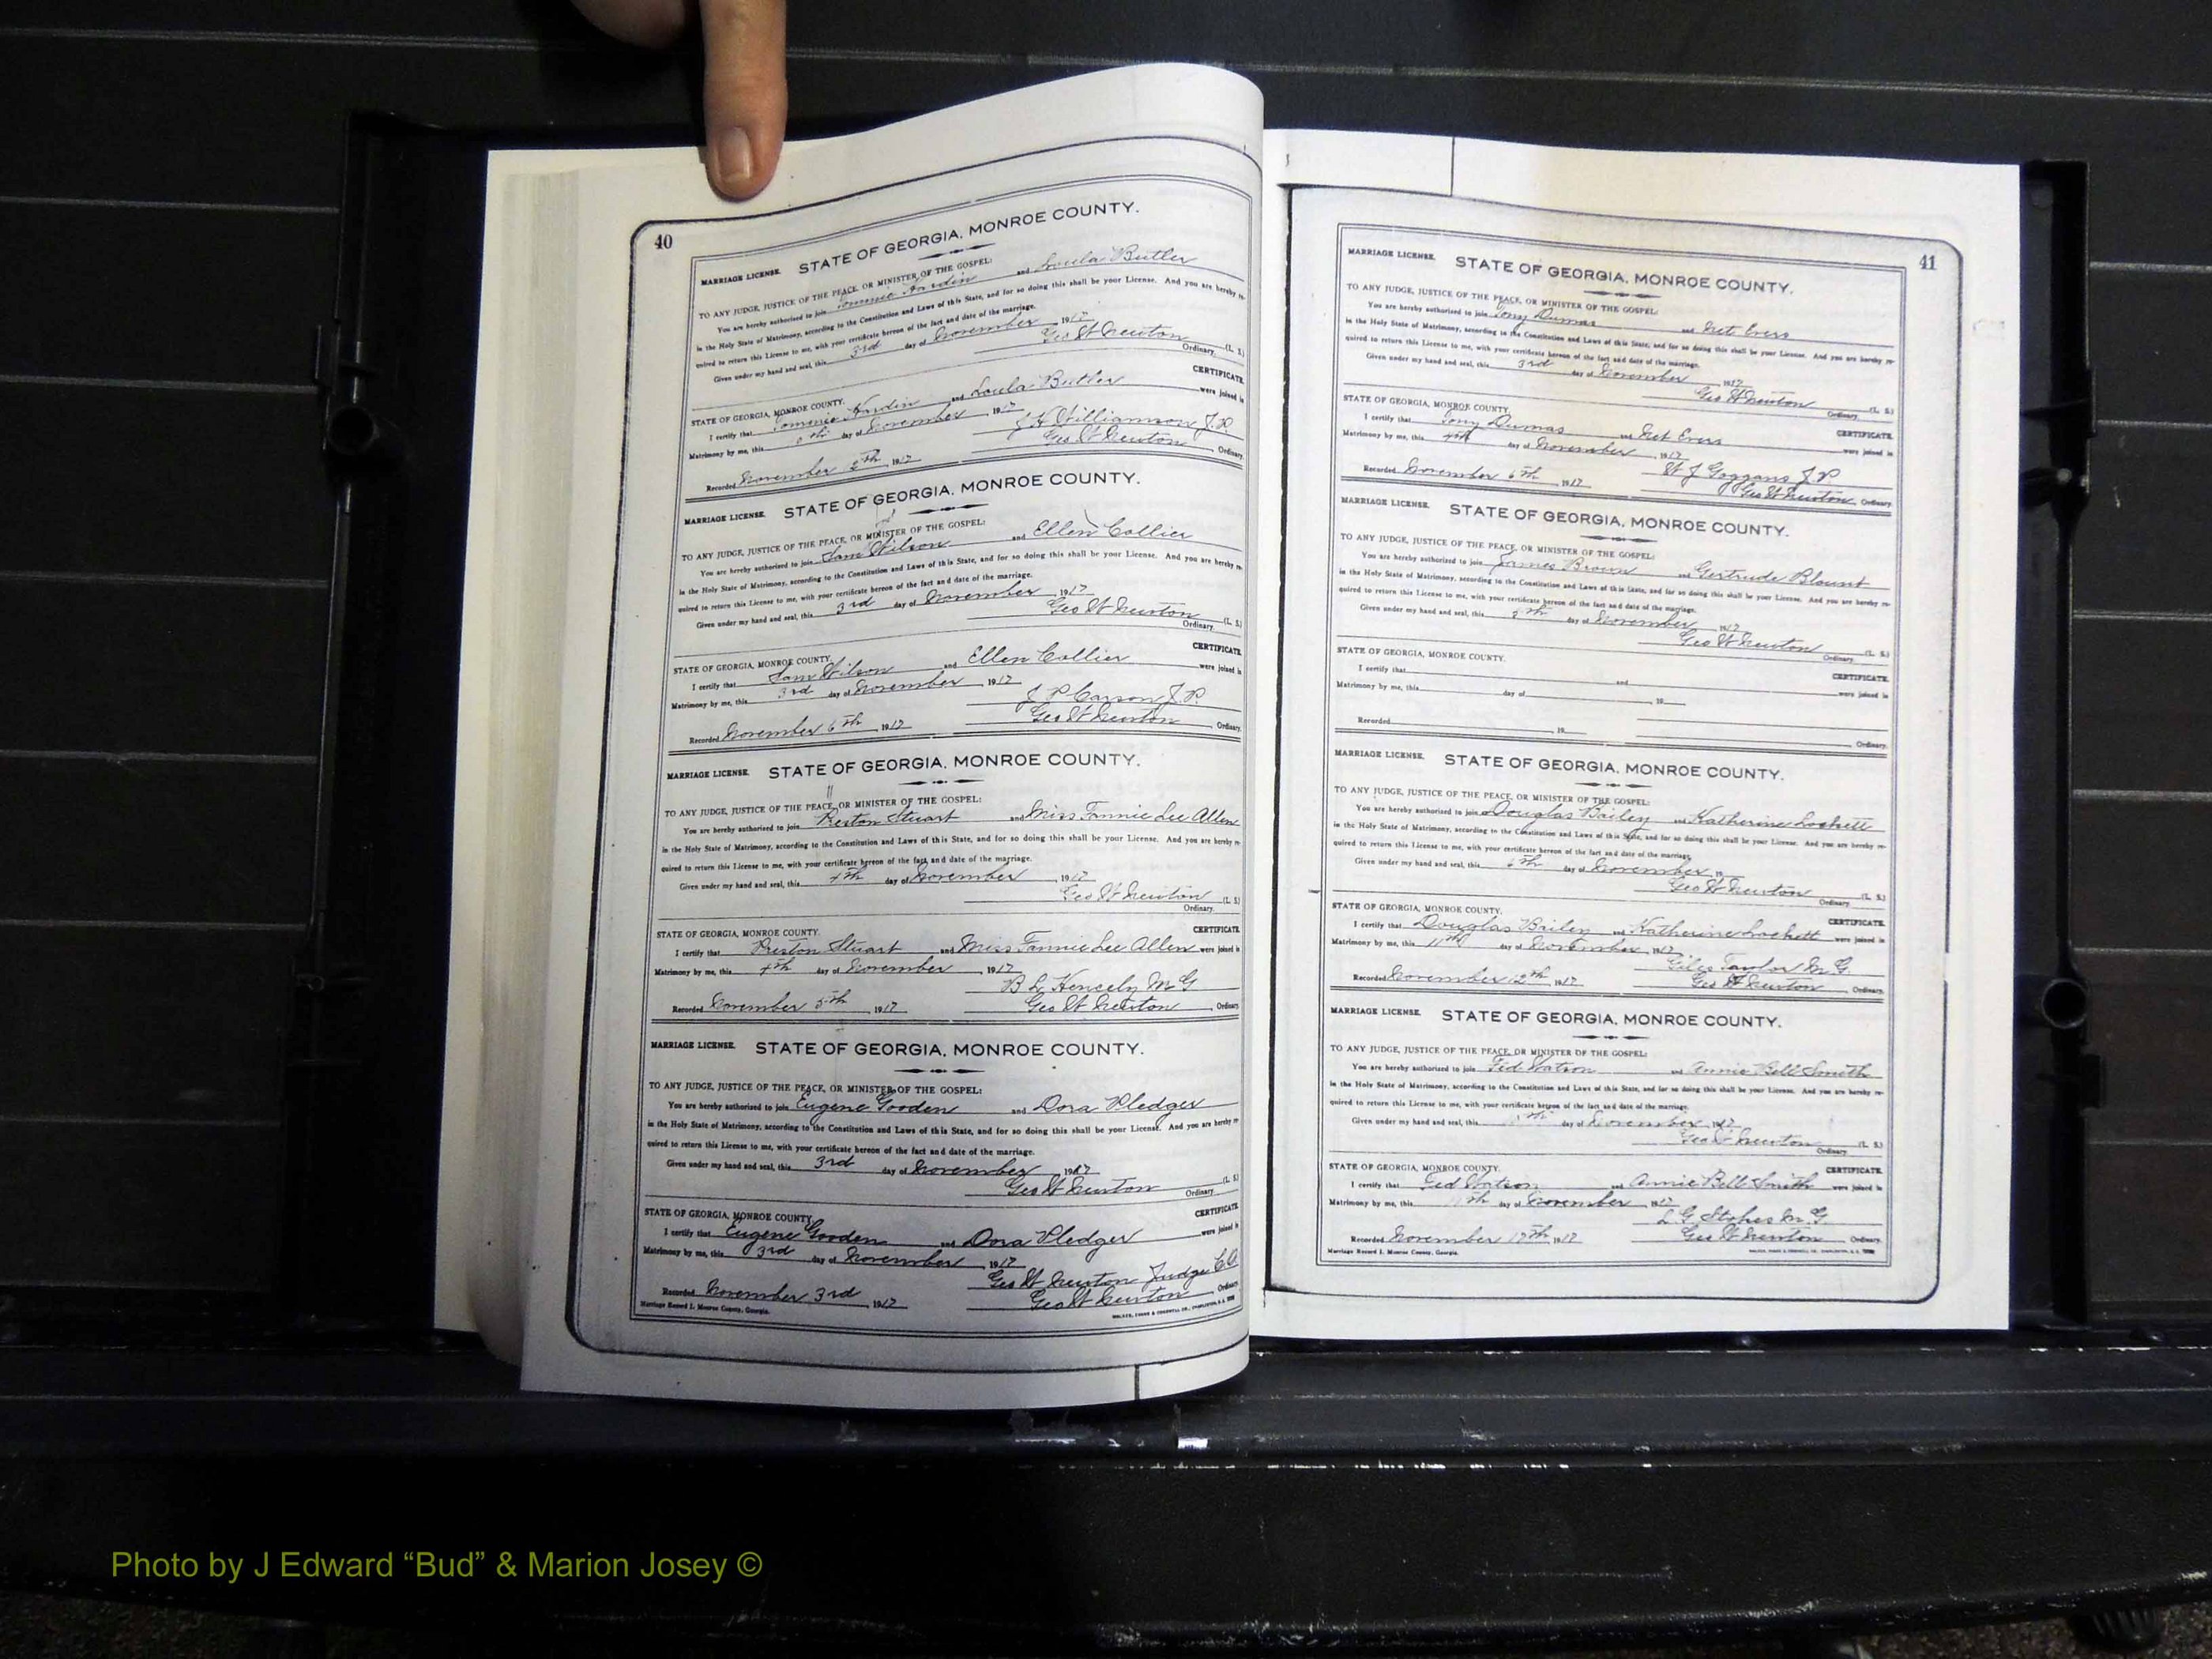 40
MARRIAGE LICENSE. STATE OF GEORGIA, MONROE COUNTY.
TO ANY JUDGE, JUSTICE OF THE PEACE, OR MINISTER OF THE GOSPEL:
You are hereby authorized to join Tommie Hardin and Loula Butler
in the Holy State of Matrimony, according to the Constitution and Laws of this State, and for so doing this shall be your License. And you are hereby re-
quired to return this License to me, with your certificate hereon of the fact and date of the marriage.
Given under my hand and seal, this 3rd day of November 1917
Geo W Newton (L. S.)
Ordinary.
STATE OF GEORGIA, MONROE COUNTY. CERTIFICATE.
I certify that Tommie Hardin and Loula Butler were joined in
Matrimony by me, this day of November, 1917
J H Williamson J.P
Recorded November 1917 Geo W Newton Ordinary.
MARRIAGE LICENSE. STATE OF GEORGIA, MONROE COUNTY.
TO ANY JUDGE, JUSTICE OF THE PEACE, OR MINISTER OF THE GOSPEL:
You are hereby authorized to join Sam Wilson and Ellen Collier
in the Holy State of Matrimony, according to the Constitution and Laws of this State, and for so doing this shall be your License. And you are hereby re-
quired to return this License to me, with your certificate hereon of the fact and date of the marriage.
Given under my hand and seal, this 3rd day of November, 1917
Geo W Newton (L. S.)
Ordinary.
STATE OF GEORGIA, MONROE COUNTY. CERTIFICATE.
I certify that Sam Wilson and Ellen Collier were joined in
Matrimony by me, this 3rd day of November, 1917
J P Carson J.P.
Recorded November 6th, 1917 Geo W Newton Ordinary.
MARRIAGE LICENSE. STATE OF GEORGIA, MONROE COUNTY.
TO ANY JUDGE, JUSTICE OF THE PEACE, OR MINISTER OF THE GOSPEL:
You are hereby authorized to join Preston Stuart and Miss Fannie Lee Allen
in the Holy State of Matrimony, according to the Constitution and Laws of this State, and for so doing this shall be your License. And you are hereby re-
quired to return this License to me, with your certificate hereon of the fact and date of the marriage.
Given under my hand and seal, this 4th day of November, 1917
Geo W Newton (L. S.)
Ordinary.
STATE OF GEORGIA, MONROE COUNTY. CERTIFICATE.
I certify that Preston Stuart and Miss Fannie Lee Allen were joined in
Matrimony by me, this 4th day of November, 1917
B L Hensely M G
Recorded November 5th, 1917 Geo W Newton, Ordinary
MARRIAGE LICENSE. STATE OF GEORGIA, MONROE COUNTY.
TO ANY JUDGE, JUSTICE OF THE PEACE, OR MINISTER OF THE GOSPEL:
You are hereby authorized to join Eugene Gooden and Dora Pledger
in the Holy State of Matrimony, according to the Constitution and Laws of this State, and for so doing this shall be your License. And you are hereby re-
quired to return this License to me, with your certificate hereon of the fact and date of the marriage.
Given under my hand and seal, this 3rd day of November 1917
Geo W Newton (L. S.)
Ordinary.
STATE OF GEORGIA, MONROE COUNTY. CERTIFICATE.
I certify that Eugene Gooden and Dora Pledger were joined in
Matrimony by me, this 3rd day of November, 1917
Geo W Newton Judge
Recorded November 3rd, 1917 Geo W Newton, Ordinary.
Marriage Record I. Monroe County, Georgia.
41
MARRIAGE LICENSE. STATE OF GEORGIA, MONROE COUNTY.
TO ANY JUDGE, JUSTICE OF THE PEACE, OR MINISTER OF THE GOSPEL:
You are hereby authorized to join Tony Dumas and Net Evers
in the Holy State of Matrimony, according to the Constitution and Laws of this State, and for so doing this shall be your License. And you are hereby re-
quired to return this License to me, with your certificate hereon of the fact and date of the marriage.
Given under my hand and seal, this 3rd day of November, 1917
Geo W Newton (L. S.)
Ordinary.
STATE OF GEORGIA, MONROE COUNTY. CERTIFICATE.
I certify that Tony Dumas and Net Evers were joined in
Matrimony by me, this 4th day of November, 1917
W J Goggans J P
Recorded November 6th, 1917 Geo W Newton, Ordinary.
MARRIAGE LICENSE. STATE OF GEORGIA, MONROE COUNTY.
TO ANY JUDGE, JUSTICE OF THE PEACE, OR MINISTER OF THE GOSPEL:
You are hereby authorized to join James Brown and Gertrude Blount
in the Holy State of Matrimony, according to the Constitution and Laws of this State, and for so doing this shall be your License. And you are hereby re-
quired to return this License to me, with your certificate hereon of the fact and date of the marriage.
Given under my hand and seal, this day of November 1917
Geo W Newton (L. S.)
Ordinary.
STATE OF GEORGIA, MONROE COUNTY. CERTIFICATE.
I certify that and were joined in
Matrimony by me, this day of, 19
Recorded 19 Ordinary.
MARRIAGE LICENSE. STATE OF GEORGIA, MONROE COUNTY.
TO ANY JUDGE, JUSTICE OF THE PEACE, OR MINISTER OF THE GOSPEL:
You are hereby authorized to join Douglas Bailey and Katherine Lockett
in the Holy State of Matrimony, according to the Constitution and Laws of this State, and for so doing this shall be your License. And you are hereby re-
quired to return this License to me, with your certificate hereon of the fact and date of the marriage.
Given under my hand and seal, this 6th day of November, 19
Geo W Newton (L. S.)
Ordinary.
STATE OF GEORGIA, MONROE COUNTY. CERTIFICATE.
I certify that Douglas Bailey and Katherine Lockett were joined in
Matrimony by me, this 11th day of November, 1917
Giles Taylor M G.
Recorded November 12th, 1917 Geo W Newton Ordinary.
MARRIAGE LICENSE. STATE OF GEORGIA, MONROE COUNTY.
TO ANY JUDGE, JUSTICE OF THE PEACE, OR MINISTER OF THE GOSPEL:
You are hereby authorized to join Ted Watson and Annie Bell Smith
in the Holy State of Matrimony, according to the Constitution and Laws of this State, and for so doing this shall be your License. And you are hereby re-
quired to return this License to me, with your certificate hereon of the fact and date of the marriage.
Given under my hand and seal, this day of November, 1917
Geo W Newton (L. S.)
Ordinary.
STATE OF GEORGIA, MONROE COUNTY. CERTIFICATE.
I certify that Ted Watson and Annie Bell Smith were joined in
Matrimony by me, this day of November, 1917
L G Stokes M.G
Recorded November 17th, 1917 Geo W Newton Ordinary.
Marriage Record I. Monroe County, Georgia.
Photo by J Edward “Bud” & Marion Josey ©